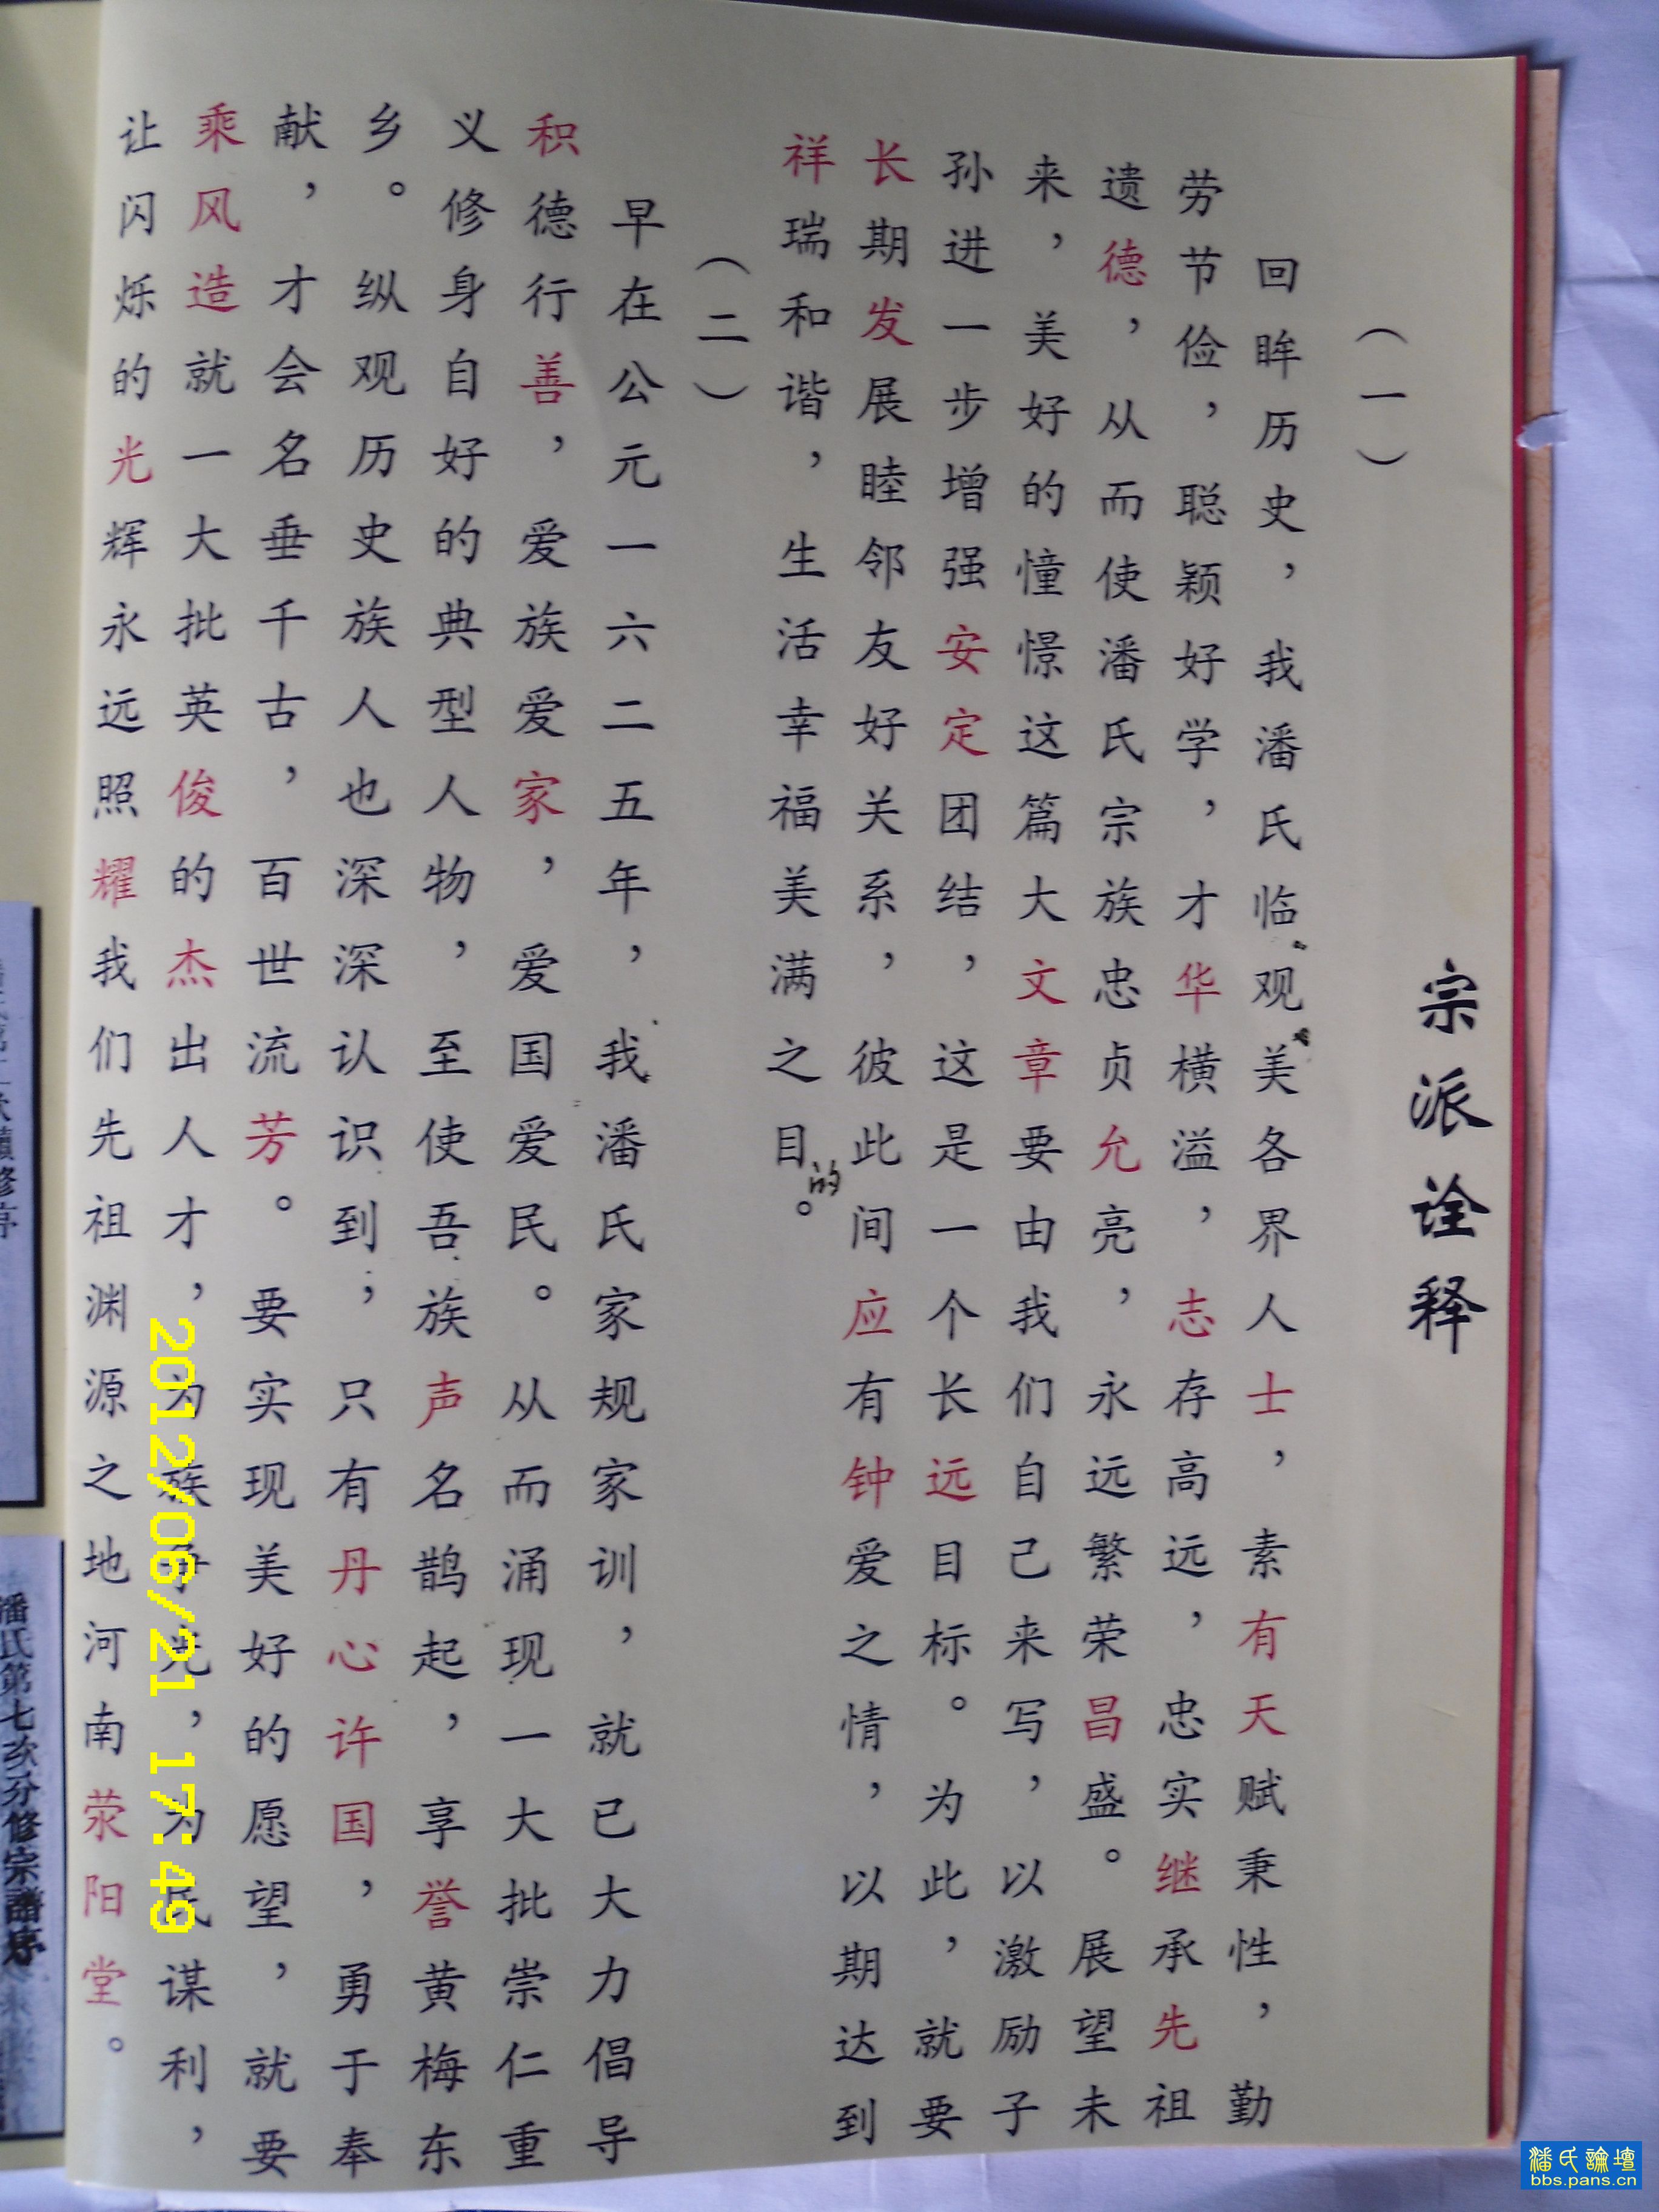 宗派诠释
（一）
回眸历史，我潘氏临观美各界人士，素有天赋秉性，勤
劳节俭，聪颖好学，才华横溢，志存高远，忠实继承先祖
遗德，从而使潘氏宗族忠贞允亮，永远繁荣昌盛。展望未
来，美好的憧憬这篇大文章要由我们自己来写，以激励子
孙进一步增强安定团结，这是一个长远目标。为此，就要
长期发展睦邻友好关系，彼此间应有钟爱之情，以期达到
祥瑞和谐，生活幸福美满之目的。
（二）
早在公元一六二五年，我潘氏家规家训，就已大力倡导
积德行善，爱族爱家，爱国爱民。从而涌现一大批崇仁重
义修身自好的典型人物，至使吾族声名鹊起，享誉黄梅东
乡。纵观历史族人也深深认识到，只有丹心许国，勇于奉
献，才会名垂千古，百世流芳。要实现美好的愿望，就要
乘风造就一大批英俊的杰出人才，为族争光，为民谋利，
让闪烁的光辉永远照耀我们先祖渊源之地河南荥阳堂。
潘氏第七次分修宗谱序
2012/06/21 17:49
潘氏論壇
bbs.pans.cn